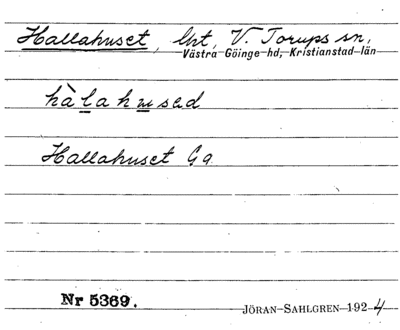 Hallahuset, lht, V. Torups sn,
Västra Göinge hd, Kristianstad län
hàlahused
Hallahuset Ga
Nr 5369.
JÖRAN SAHLGREN 1924